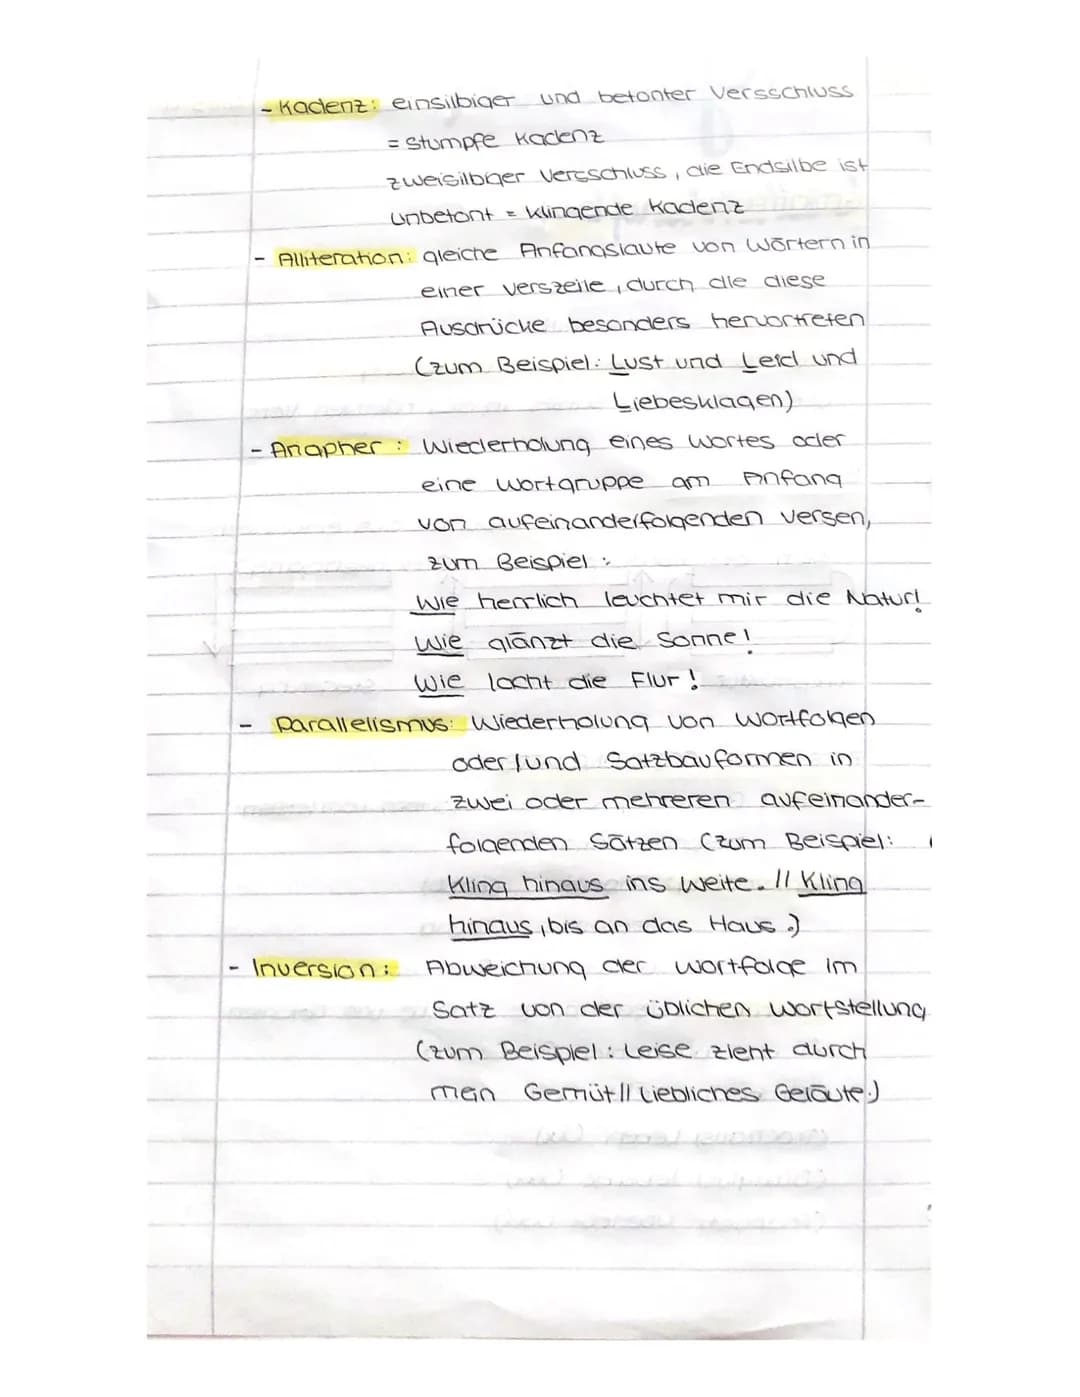 - Kadenz: einsilbiger und betonter Versschluss
= stumpfe Kadenz
zweisilbiger Versschluss, die Endsilbe ist
unbetont = klingende Kadenz
- Alliteration: gleiche Anfangslaute von Wörtern in
einer Verszeile, durch die diese
Ausdrücke besonders hervortreten
(zum Beispiel: Lust und Leid und
Liebesklagen)
- Anapher: Wiederholung eines Wortes oder
eine Wortgruppe am Anfang
von aufeinanderfolgenden Versen,
zum Beispiel:
Wie herrlich leuchtet mir die Natur!
Wie glänzt die Sonne!
Wie lacht die Flur!
- Parallelismus: Wiederholung von Wortfolgen
oder/und Satzbauformen in
zwei oder mehreren aufeinander-
folgenden Sätzen (zum Beispiel:
Kling hinaus ins Weite. // Kling
hinaus, bis an das Haus.)
- Inversion: Abweichung der Wortfolge im
Satz von der üblichen Wortstellung
(zum Beispiel: Leise zieht durch
mein Gemüt // Liebliches Geläute.)